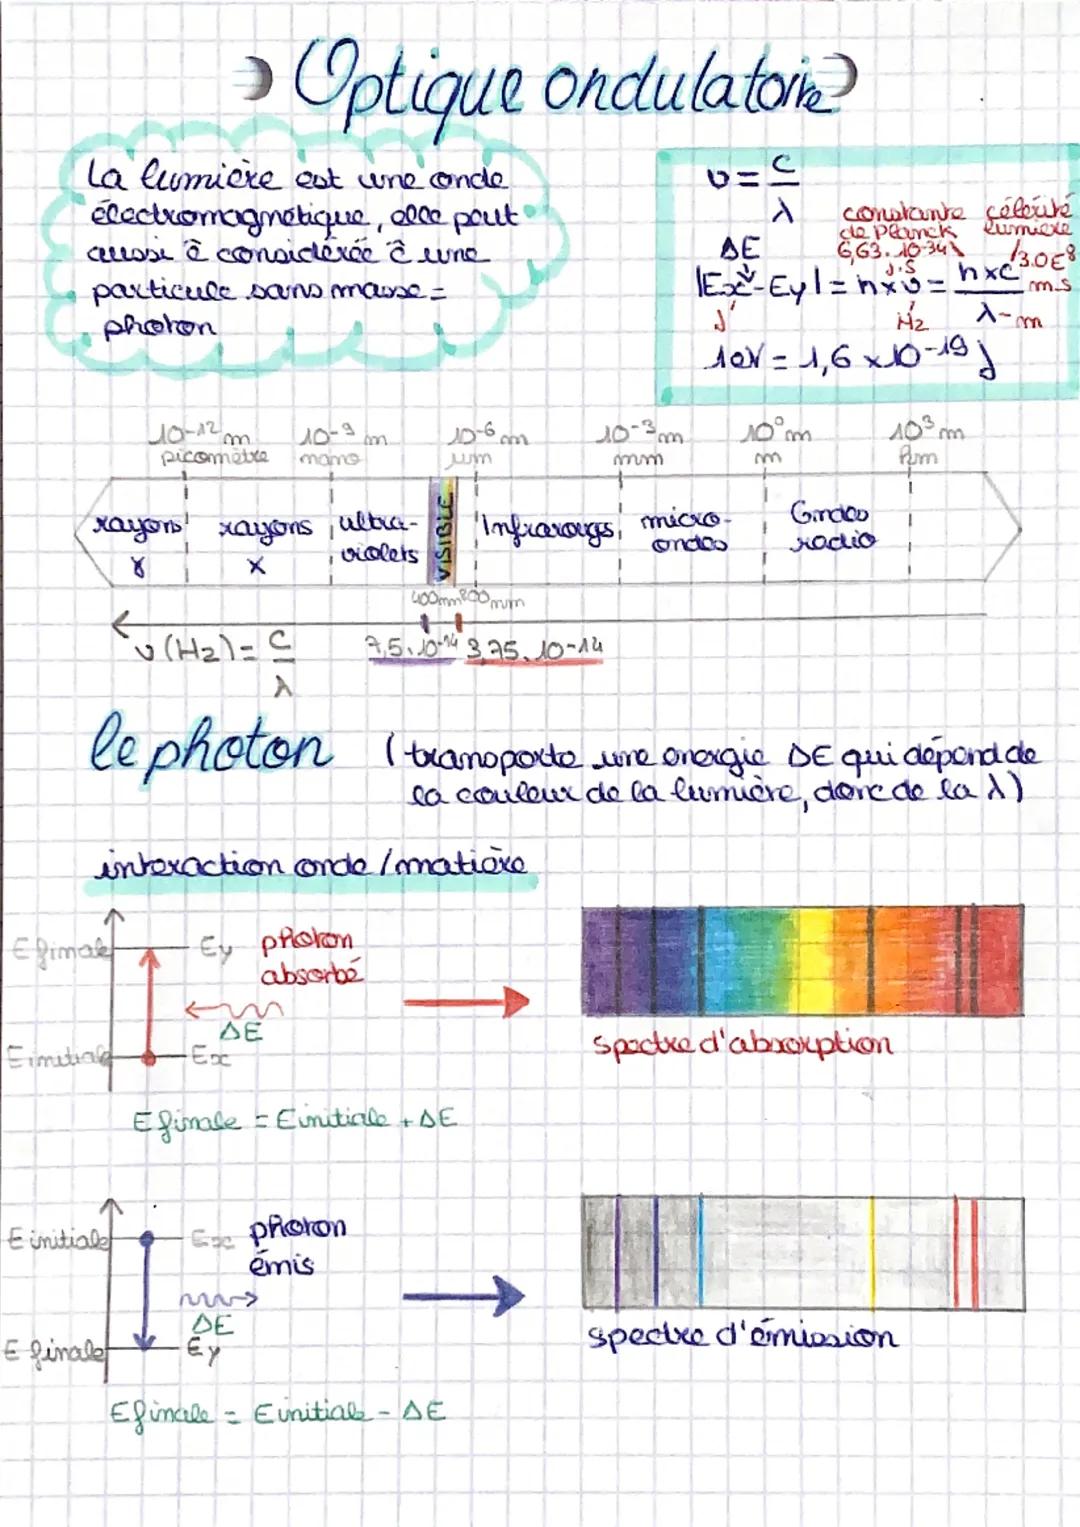 Optique ondulatoire
La lumière est une onde
électromagnétique, elle peut
aussi ê considérée ê une
particule sans masse =
photon
υ = c
λ
constante célérité
de Planck lumière
6,63.10-34 /3.0E8
ΔE J.S
|Ex-Ey| = h x υ = h x c m.s
J Hz λ - m
1eV = 1,6 x 10-19 J
10-12 m 10-9 m 10-6 m 10-3 m 10° m 10³ m
picomètre nano µm mm m km
rayons rayons ultra- VISIBLE Infrarouges micro- Ondes
γ X violets ondes radio
400nm 800nm
υ (Hz) = c 7,5.10-14 3,75.10-14
λ
le photon (transporte une énergie ΔE qui dépend de
la couleur de la lumière, donc de la λ)
interaction onde/matière
E finale Ey photon
absorbé
ΔE
E initiale Ex
spectre d'absorption
E finale = E initiale + ΔE
E initiale Ex photon
émis
ΔE
E finale Ey
spectre d'émission
E finale = E initiale - ΔE